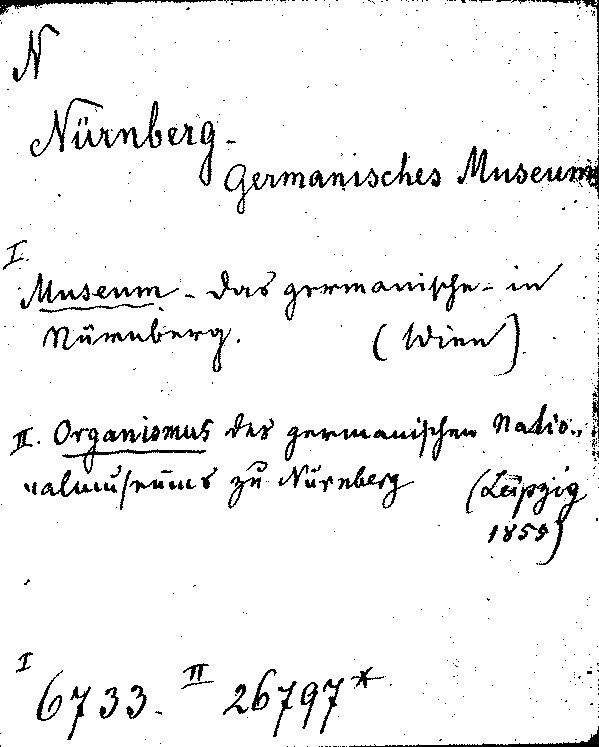 N
Nürnberg.
Germanisches Museum
I
Museum - das germanische - in
Nürnberg. (Wien)
II. Organismus des germanischen Natio-
nalmuseums zu Nürnberg (Leipzig
1855)
I 6733. II 26797*